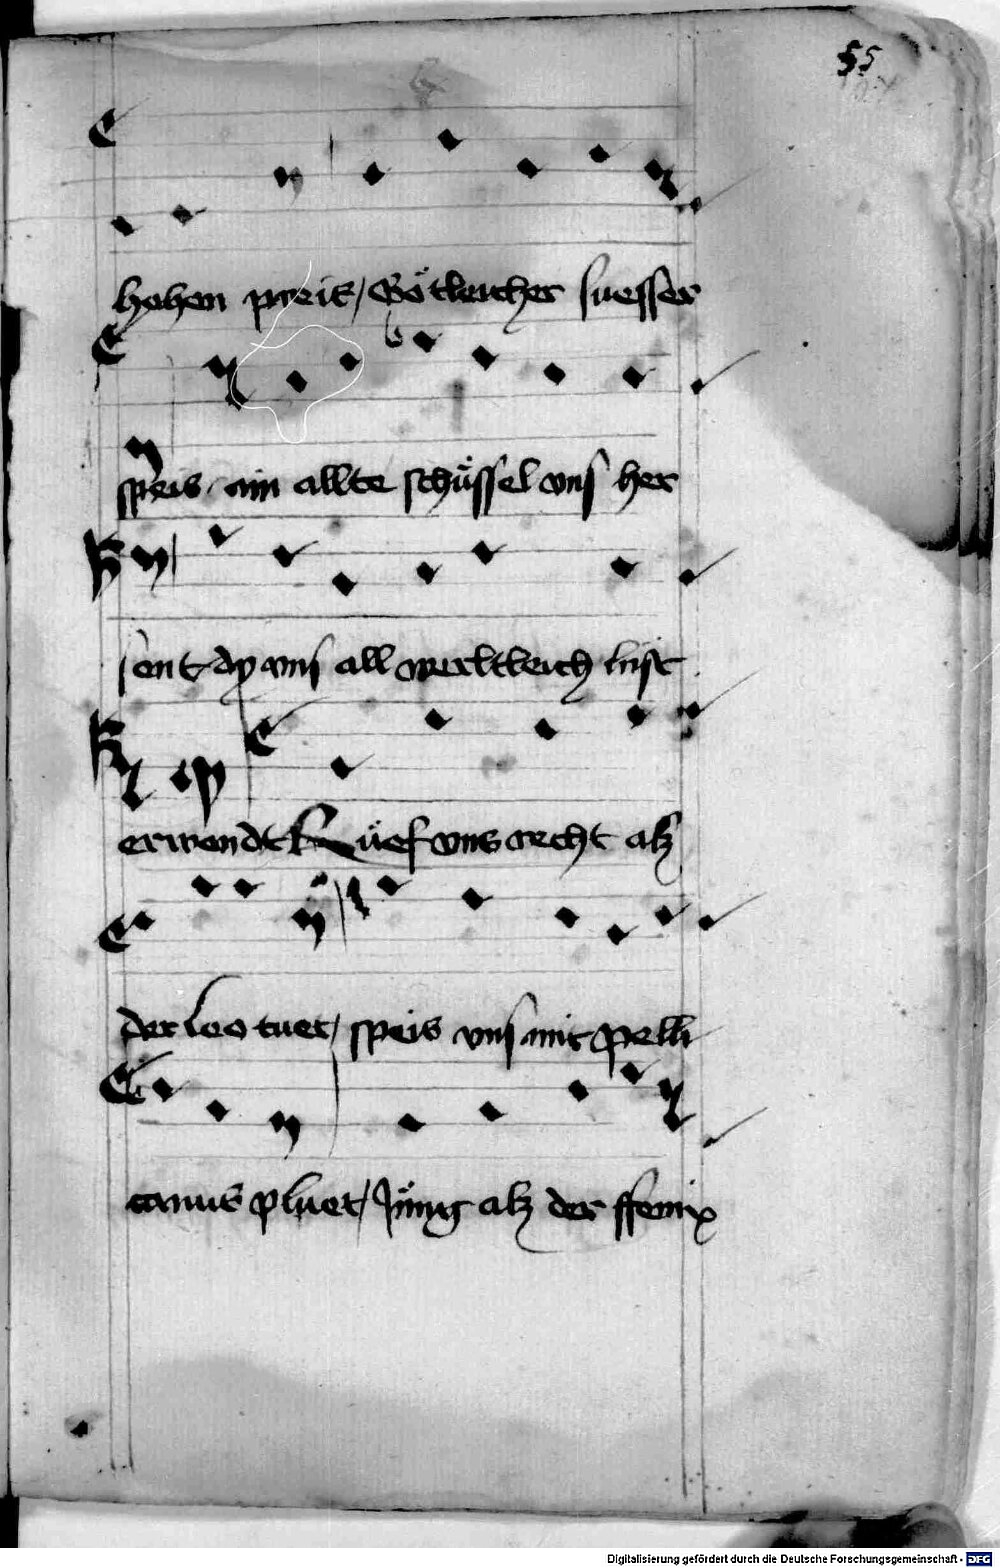 55
hohen preis / Götleicher suesser
speis / ain allte schüssel vns her
sent dy vns all werltleich lust
erwendt Rüef vns recht alz
der leo tuet / speis vns mit pelli
canus pluet / Jüng alz der ffenix
Digitalisierung gefördert durch die Deutsche Forschungsgemeinschaft - DFG